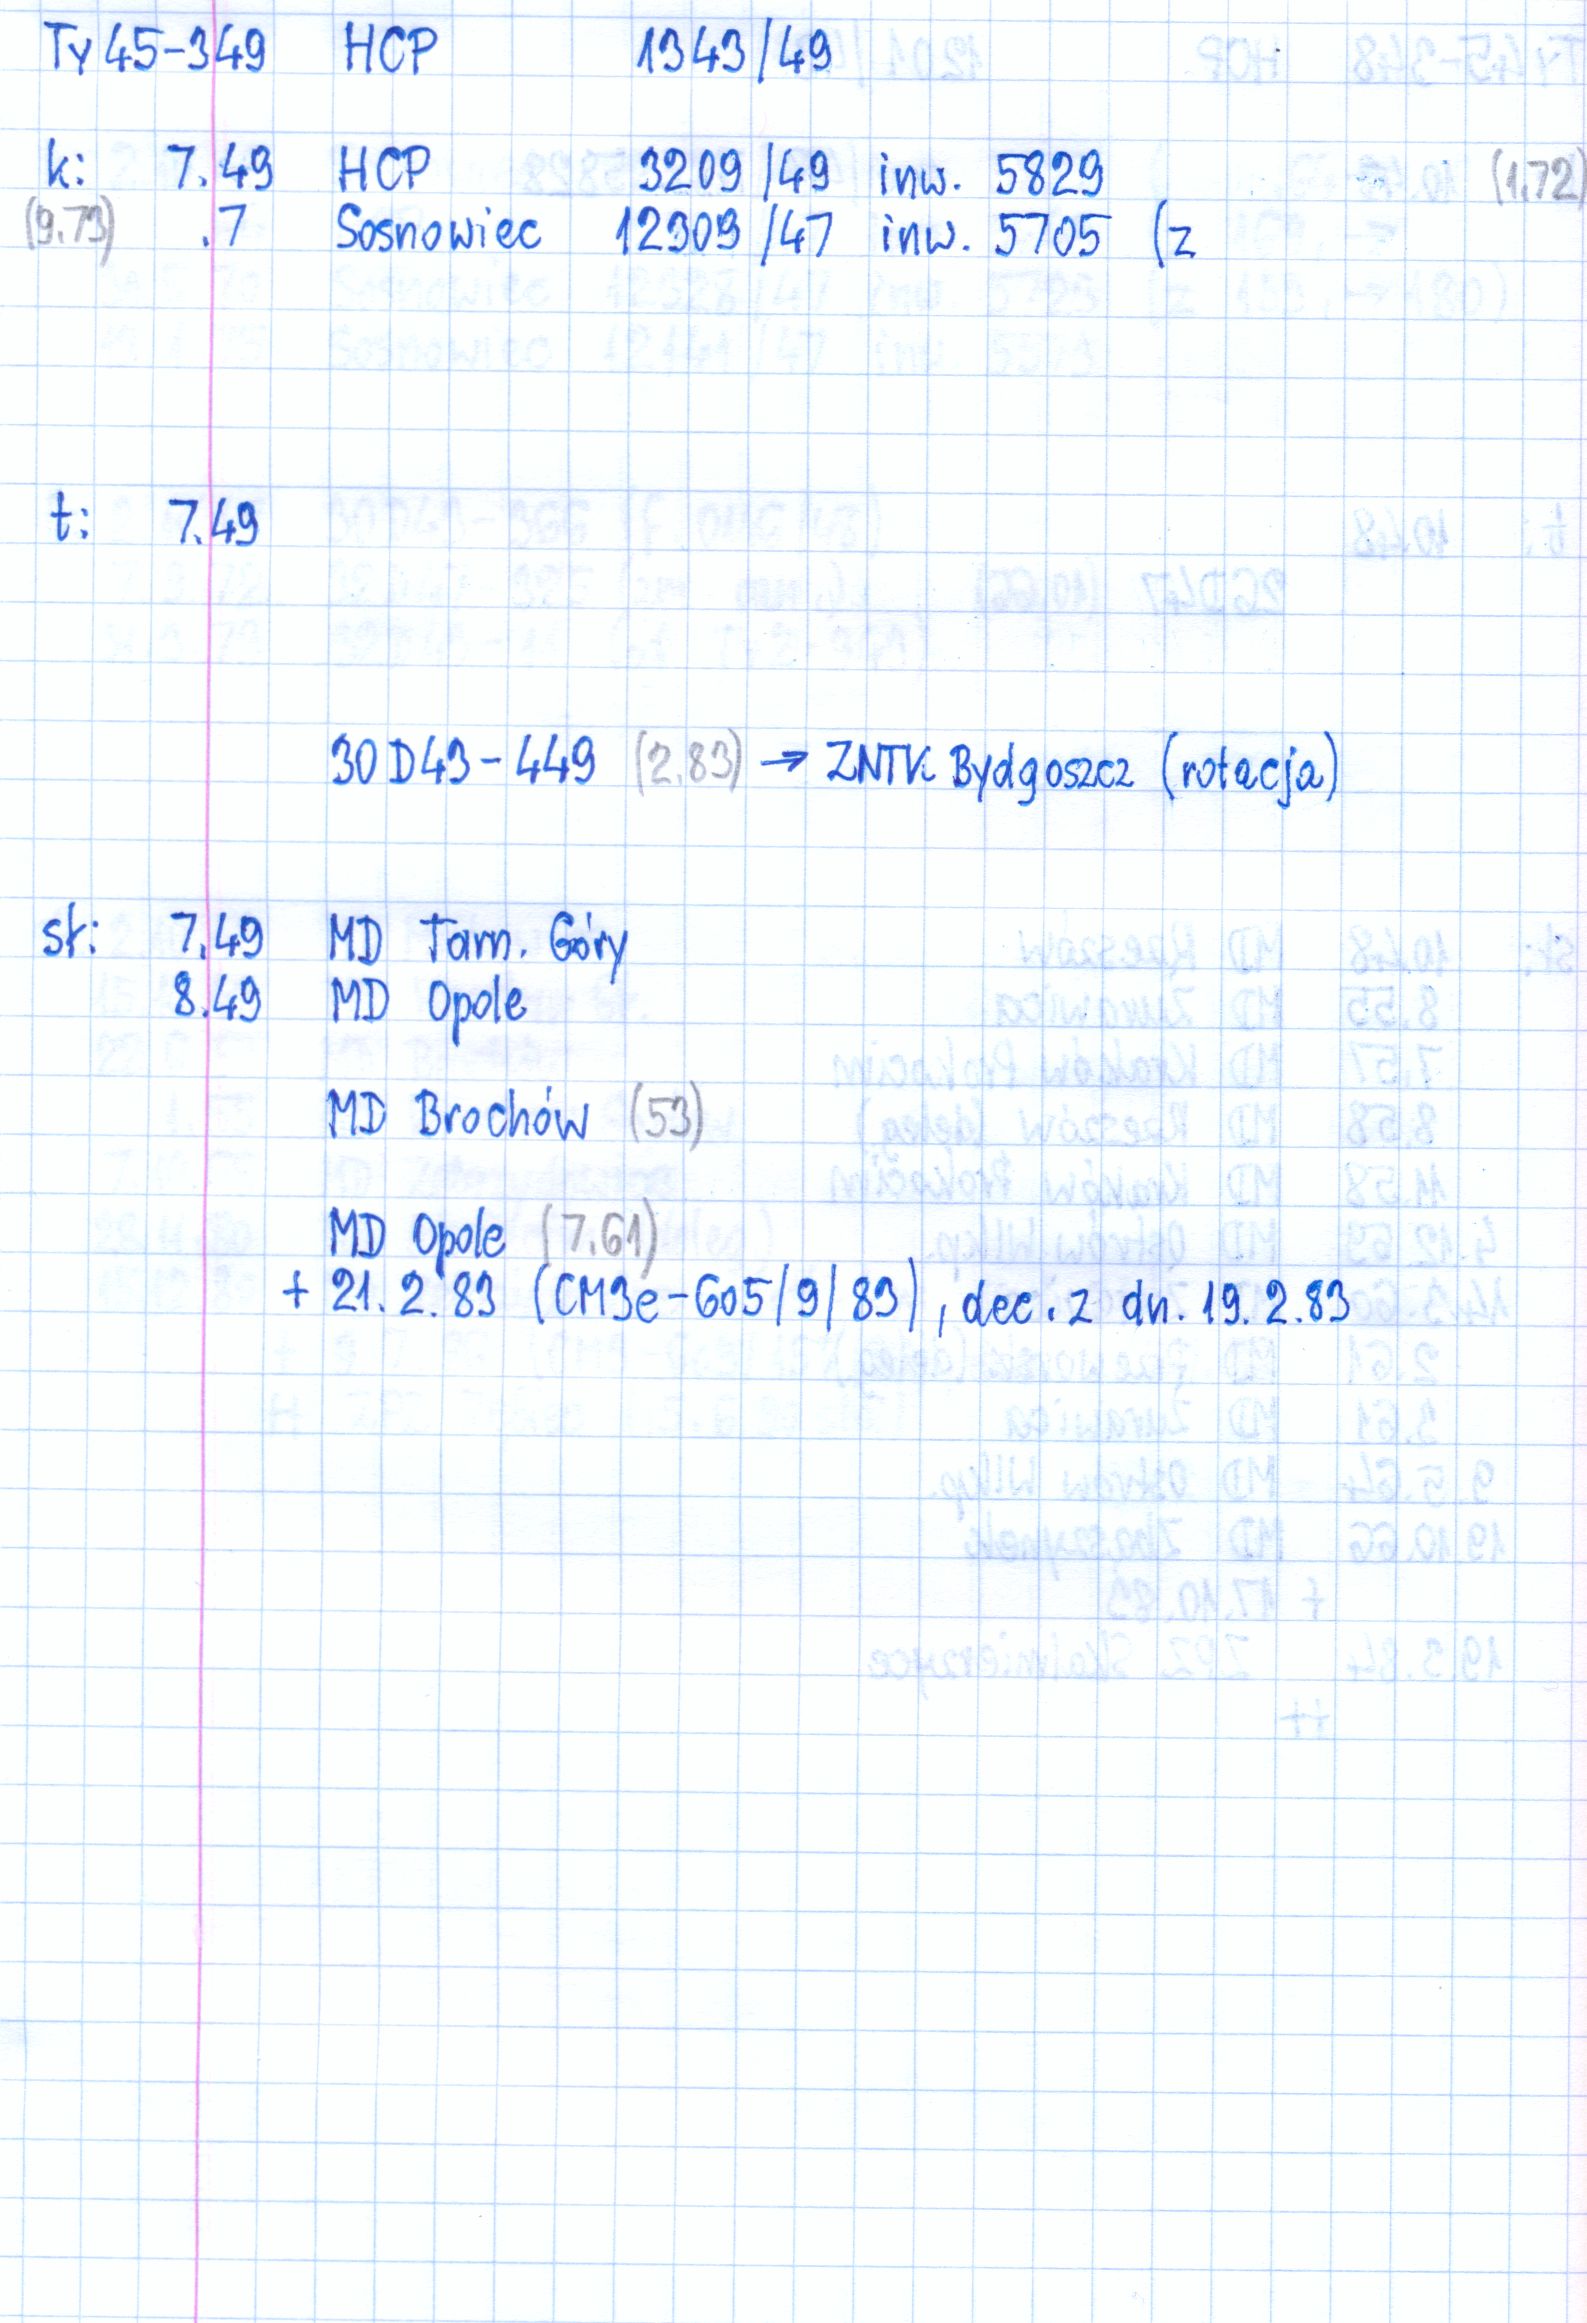 Ty45-349 HCP 1343/49
k: 7.49 HCP 3209/49 inw. 5829 (1.72)
(9.73) .7 Sosnowiec 12309/47 inw. 5705 (z
t: 7.49
30D43-449 (2.83) → ZNTK Bydgoszcz (rotacja)
sł: 7.49 MD Tarn. Góry
8.49 MD Opole
MD Brochów (53)
MD Opole (7.61)
+ 21.2.83 (CM3e-605/9/83), dec. z dn. 19.2.83